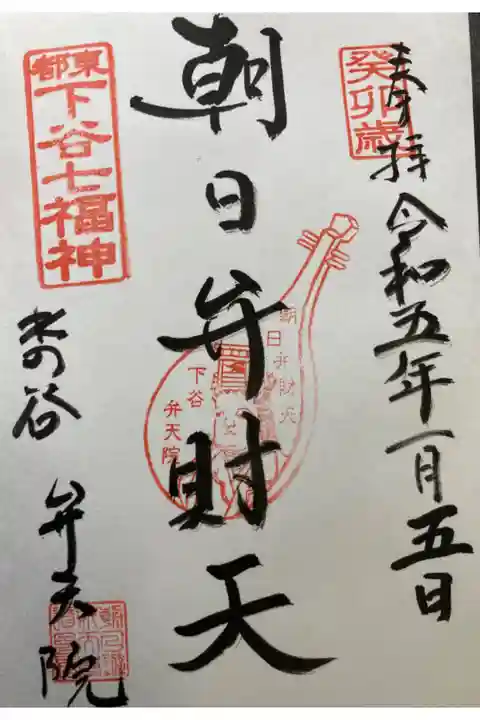 奉拝 令和五年一月五日
癸卯歳
朝日弁財天
朝日弁財天
下谷
弁天院
東都
下谷七福神
水の谷 弁天院